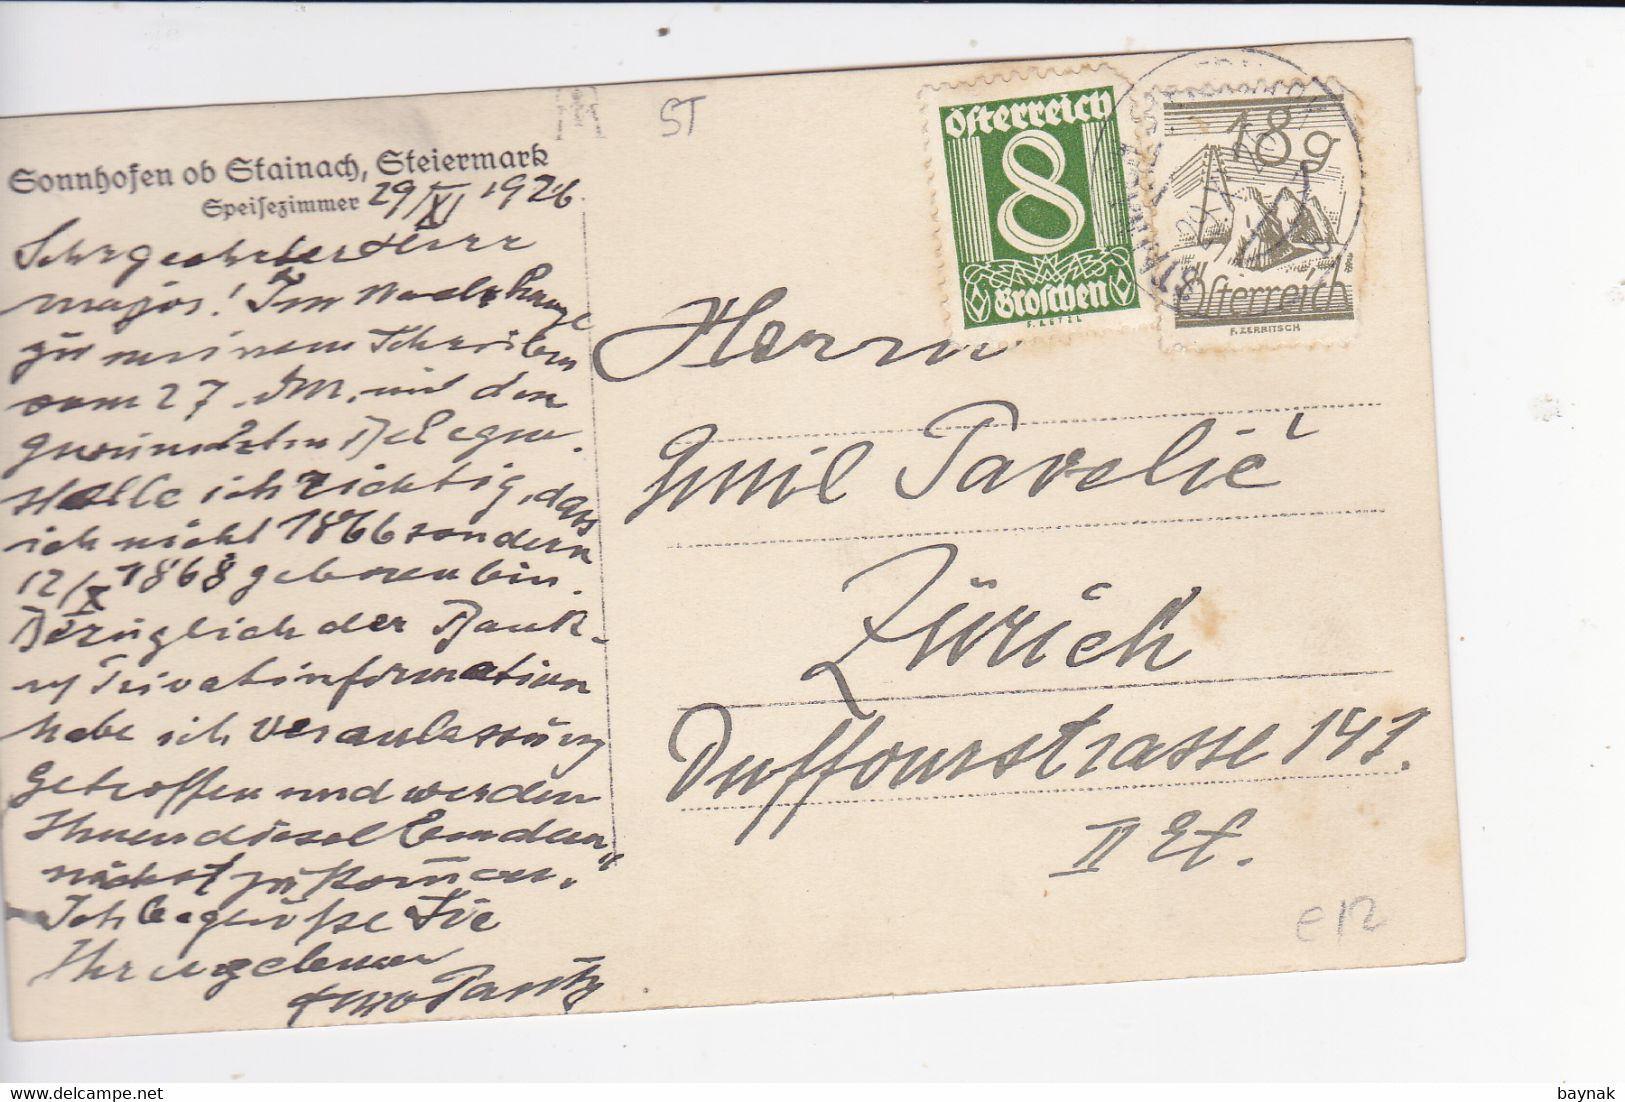 Sonnhofen ob Stainach, Steiermark
Speisezimmer 29/XI 1926
Sehr geehrter Herr
Major! Im Nachhange
zu meinem Schreiben
vom 27. d. M. mit den
gewünschten
stelle ich richtig, dass
ich nicht 1866 sondern
12/X 1868 geboren bin.
Bezüglich der Bank-
u/ Privatinformation
habe ich Veranlassung
getroffen und werden
Ihnen dieselben dem
nächst zukommen.
Ich begrüße Sie
Ihr ergebener
ST
Österreich
8
Groschen
18 g
Österreich
F. ZERRITSCH
Herrn
Emil Pavelić
Zürich
Duffourstrasse 141.
II Et.
e12
baynak